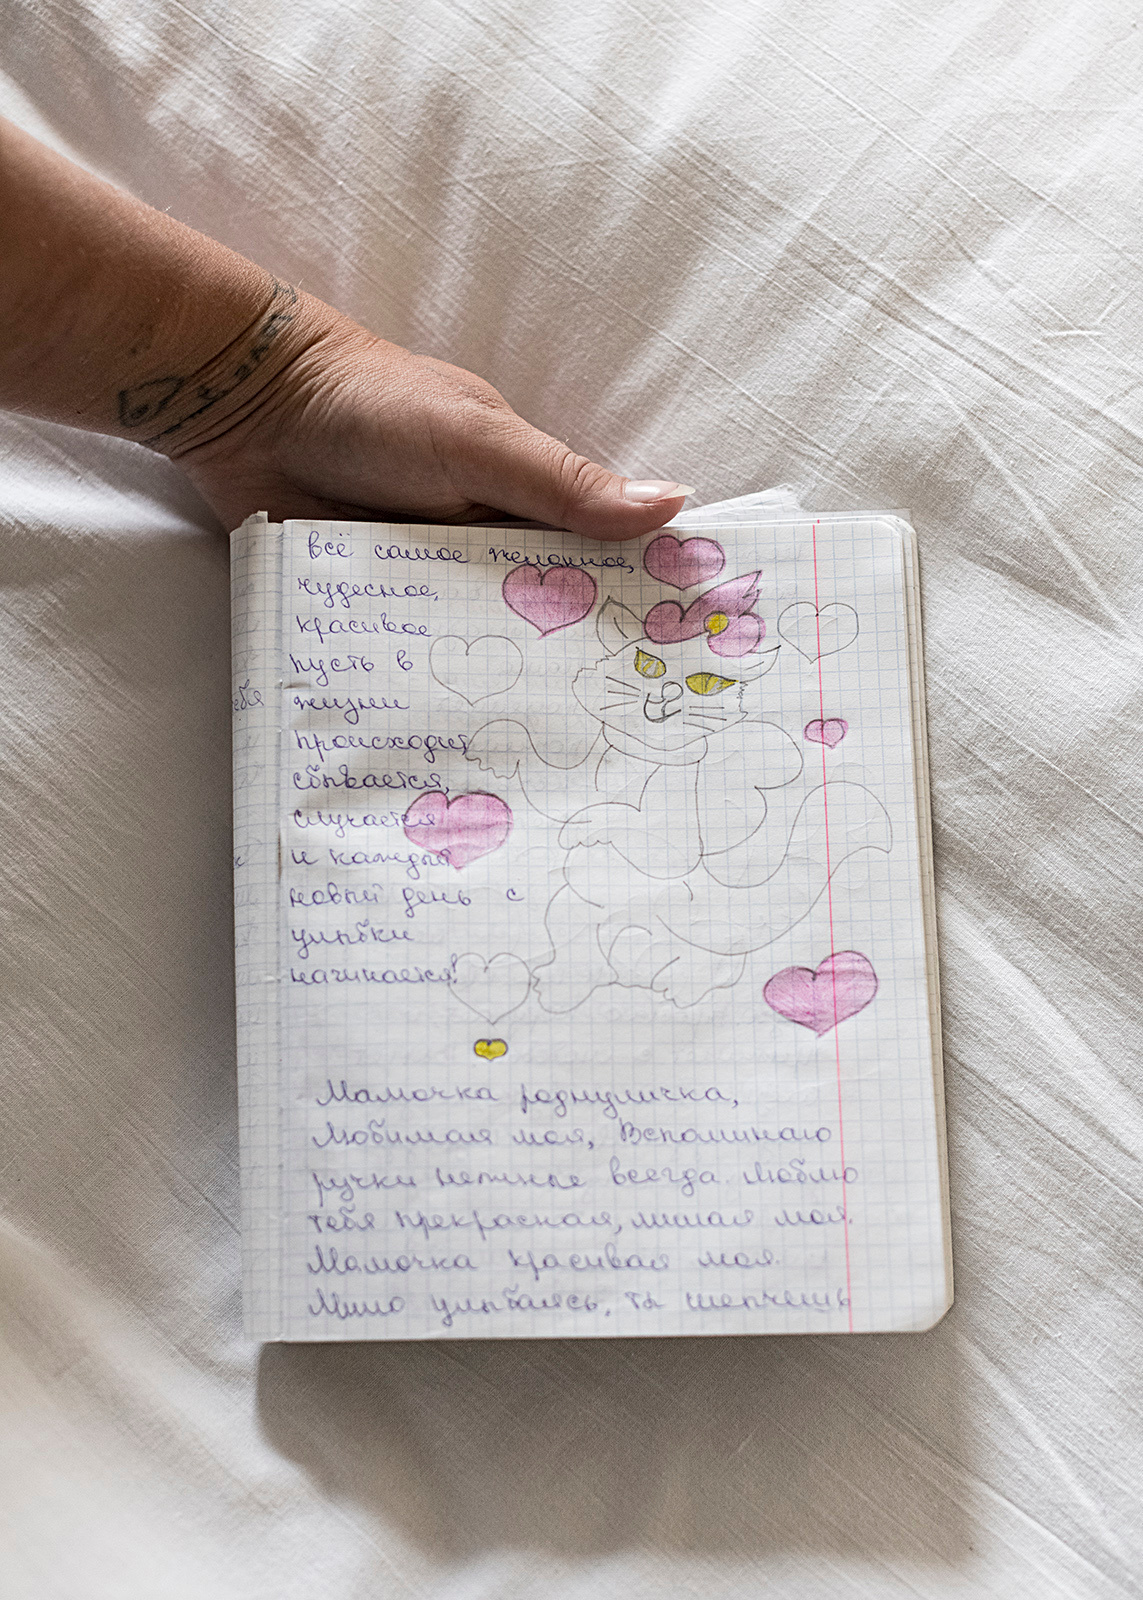 всё самое желанное,
чудесное,
красивое
пусть в
жизни
происходит
сбывается,
случается
и каждый
новый день с
улыбки
начинается!
Мамочка роднуличка,
Любимая моя, Вспоминаю
ручки нежные всегда. Люблю
тебя прекрасная, милая моя.
Мамочка красивая моя.
Мило улыбаясь, ты шепчешь